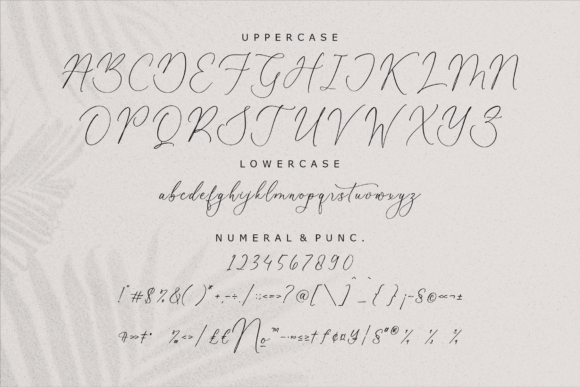 UPPERCASE
ABCDEFGHIJKLMN
OPQRSTUVWXYZ
LOWERCASE
abcdefghijklmnopqrstuvwxyz
NUMERAL & PUNC.
1234567890
!"#$%&()*+,-÷/:;<=>?@[\]^_`{}¡-§©«¬±
‰‹›/₤€№™-∞≤≥†ƒ¢¤¥|§"® ¼ ½ ¾